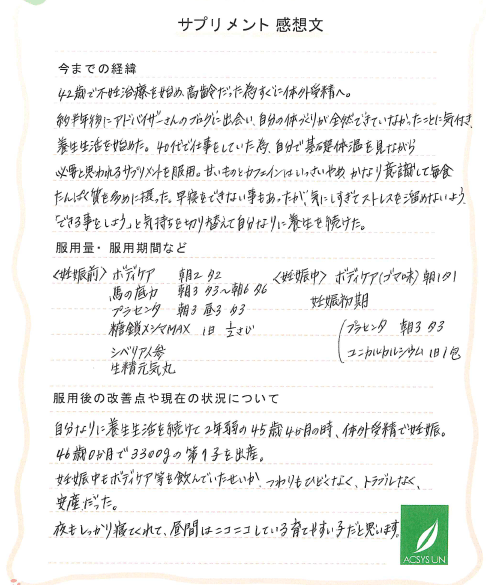 サプリメント 感想文
今までの経緯
42歳で不妊治療を始め、高齢だった為すぐに体外受精へ。
約半年後にアドバイザーさんのブログに出会い、自分の体づくりが全然できていなかったことに気付き、
養生生活を始めた。40代で仕事をしていた為、自分で基礎体温を見ながら
必要と思われるサプリメントを服用。甘いものとカフェインはいっさいやめ、かなり意識して毎食
たんぱく質を多めに摂った。早寝をできない事もあったが、気にしすぎてストレスを溜めないよう
「できる事をしよう」と気持ちを切り替えて自分なりに養生を続けた。
服用量・服用期間など
<妊娠前> ボディケア 朝2 夕2 <妊娠中> ボディケア(ゴマ味) 朝1夕1
馬の底力 朝3 夕3〜朝6 夕6 妊娠初期
プラセンタ 朝3 昼3 夕3 プラセンタ 朝3 夕3
糖鎖メシマMAX 1日 1/2さじ ユニカルカルシウム 1日1包
シベリア人参
生精元気丸
服用後の改善点や現在の状況について
自分なりに養生生活を続けて2年弱の45歳4か月の時、体外受精で妊娠。
46歳0か月で3300gの第1子を出産。
妊娠中もボディケア等を飲んでいたせいか、つわりもひどくなく、トラブルなく、
安産だった。
夜もしっかり寝てくれて、昼間はニコニコしている育てやすい子だと思います。
ACSYSLIN